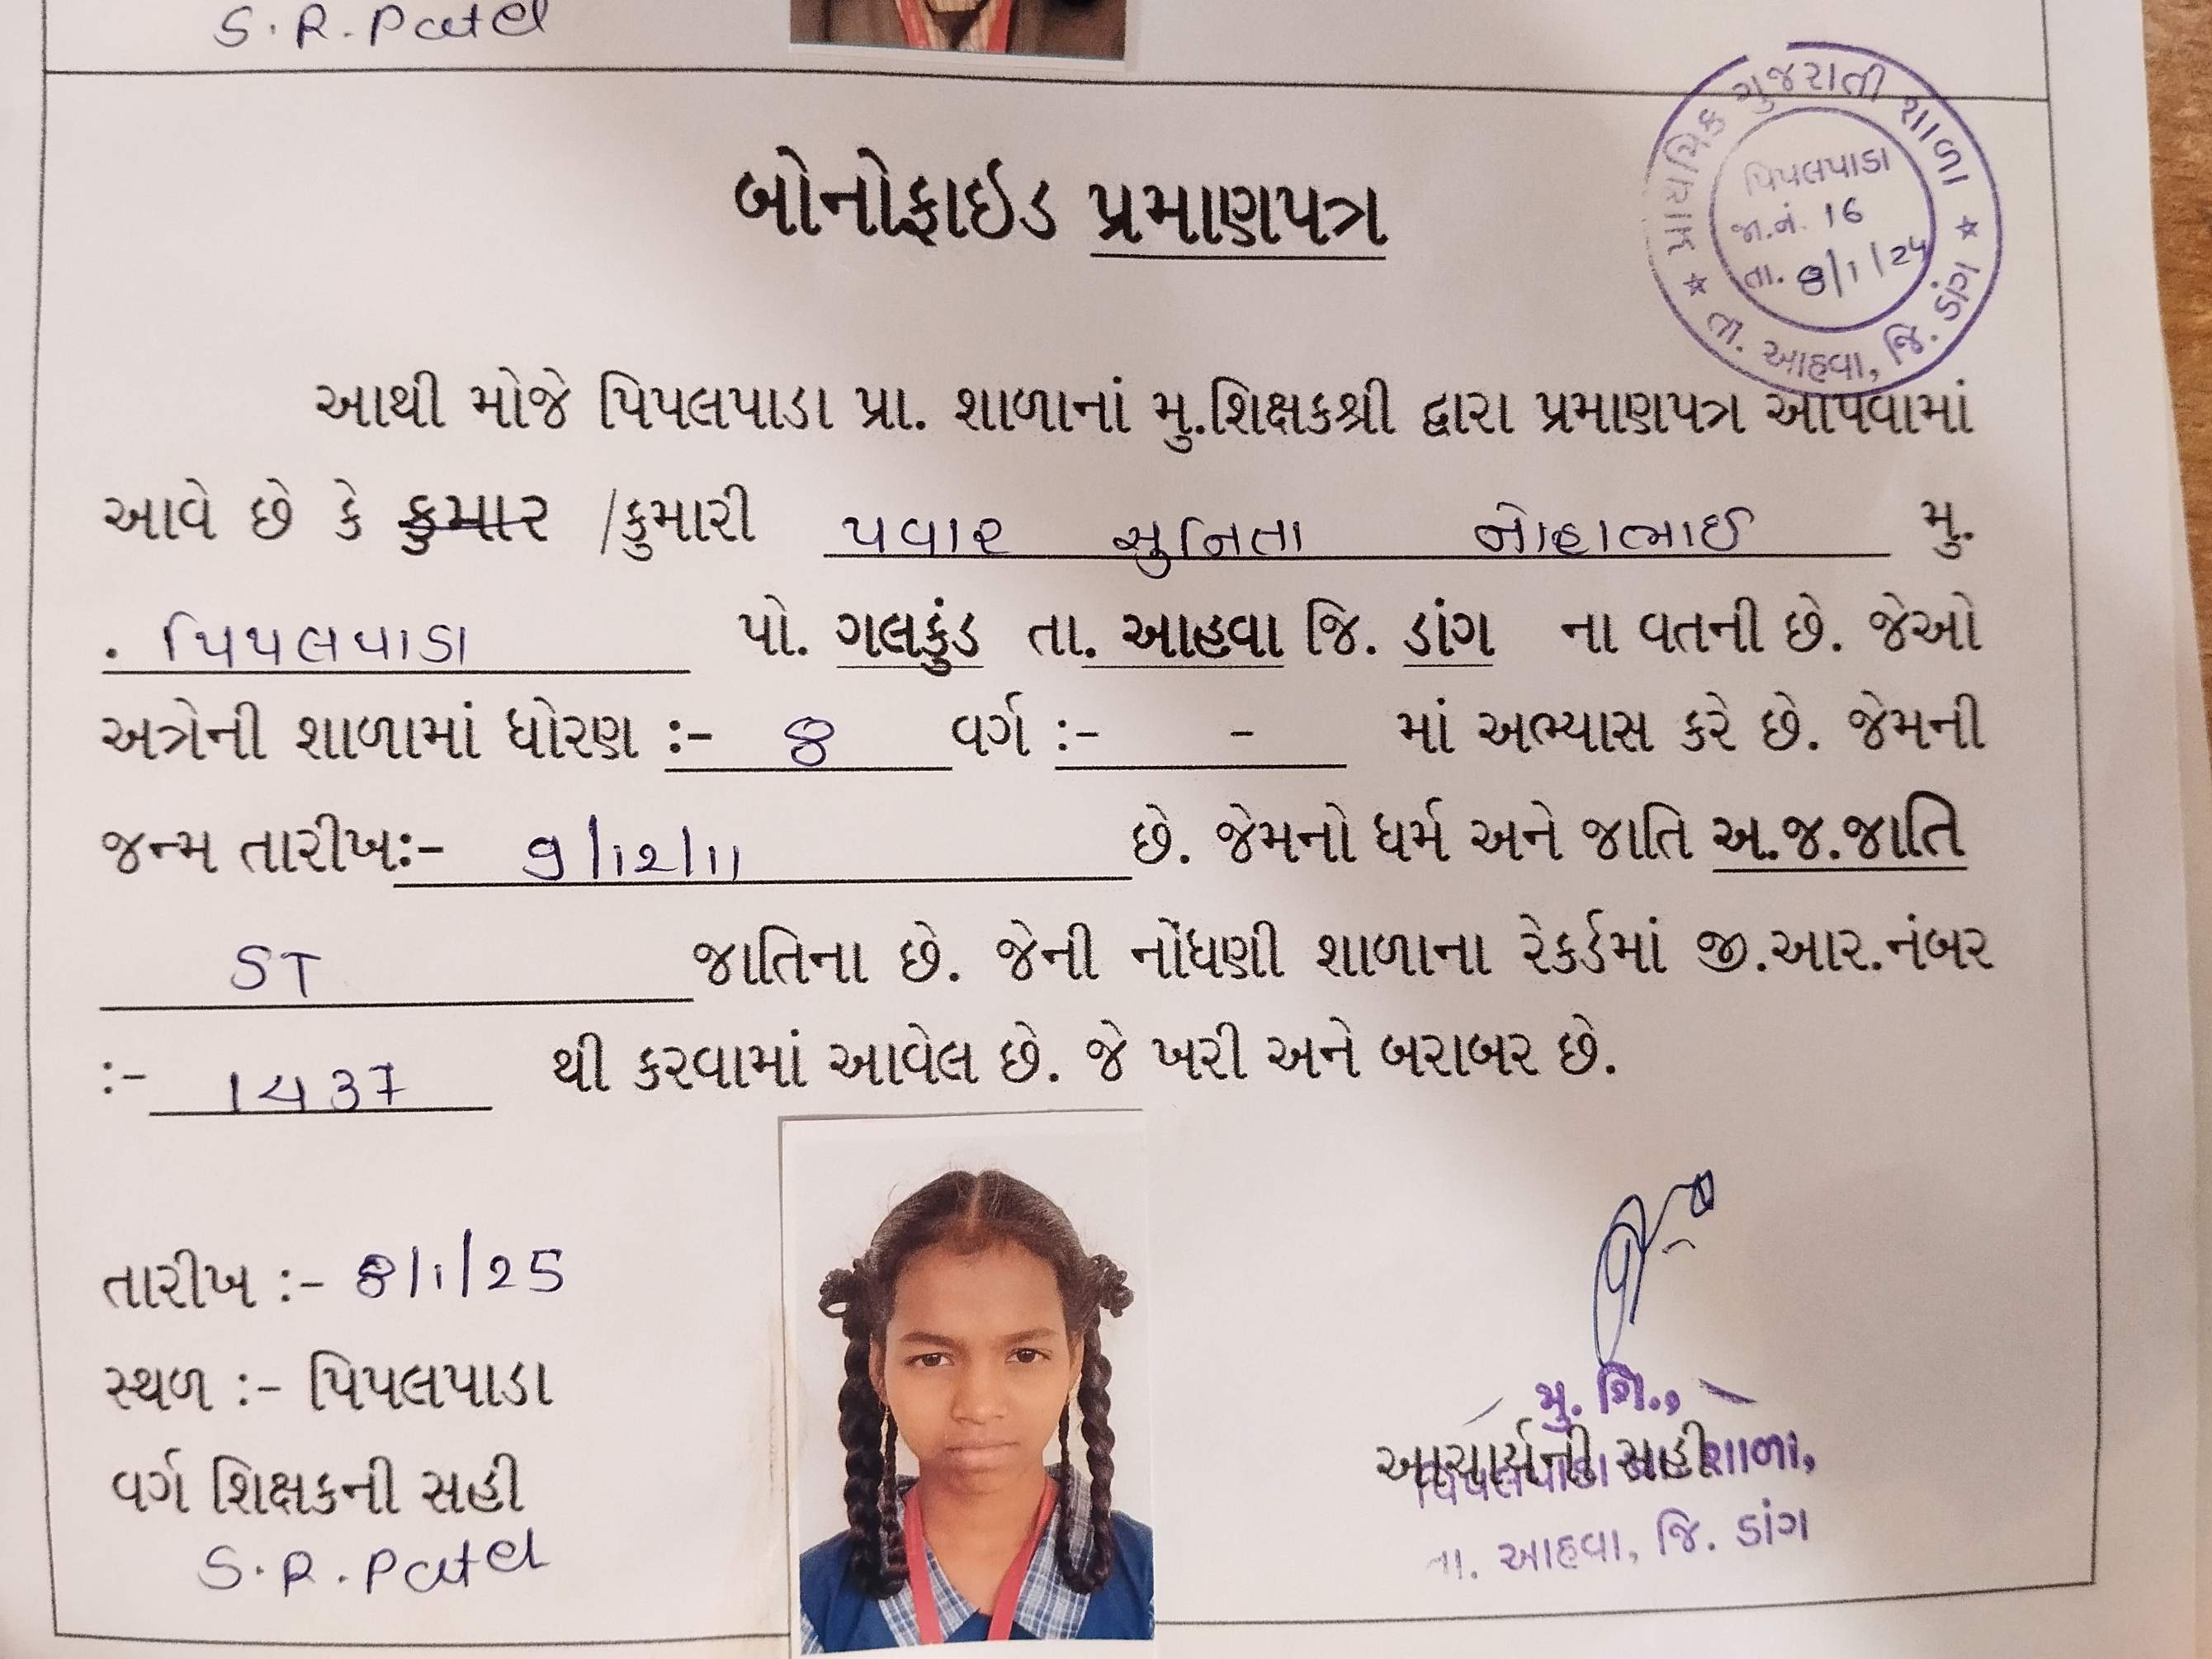 S.R.Patel
બોનોફાઇડ પ્રમાણપત્ર
પ્રાથમિક ગુજરાતી શાળા
પિપલપાડા
જા.નં. 16
તા. 8/1/25
★ તા. આહવા, જિ. ડાંગ ★
આથી મોજે પિપલપાડા પ્રા. શાળાનાં મુ.શિક્ષકશ્રી દ્વારા પ્રમાણપત્ર આપવામાં
આવે છે કે કુમાર /કુમારી પવાર સુનિતા નોહાભાઈ મુ.
. પિપલપાડા પો. ગલકુંડ તા. આહવા જિ. ડાંગ ના વતની છે. જેઓ
અત્રેની શાળામાં ધોરણ :- 8 વર્ગ :- - માં અભ્યાસ કરે છે. જેમની
જન્મ તારીખ:- 9/12/11 છે. જેમનો ધર્મ અને જાતિ અ.જ.જાતિ
ST જાતિના છે. જેની નોંધણી શાળાના રેકર્ડમાં જી.આર.નંબર
:- 1437 થી કરવામાં આવેલ છે. જે ખરી અને બરાબર છે.
તારીખ :- 8/1/25
સ્થળ :- પિપલપાડા
વર્ગ શિક્ષકની સહી
S.R.Patel
મુ. શિ.,
આચાર્યની સહી
પિપલપાડા પ્રા. શાળા,
તા. આહવા, જિ. ડાંગ